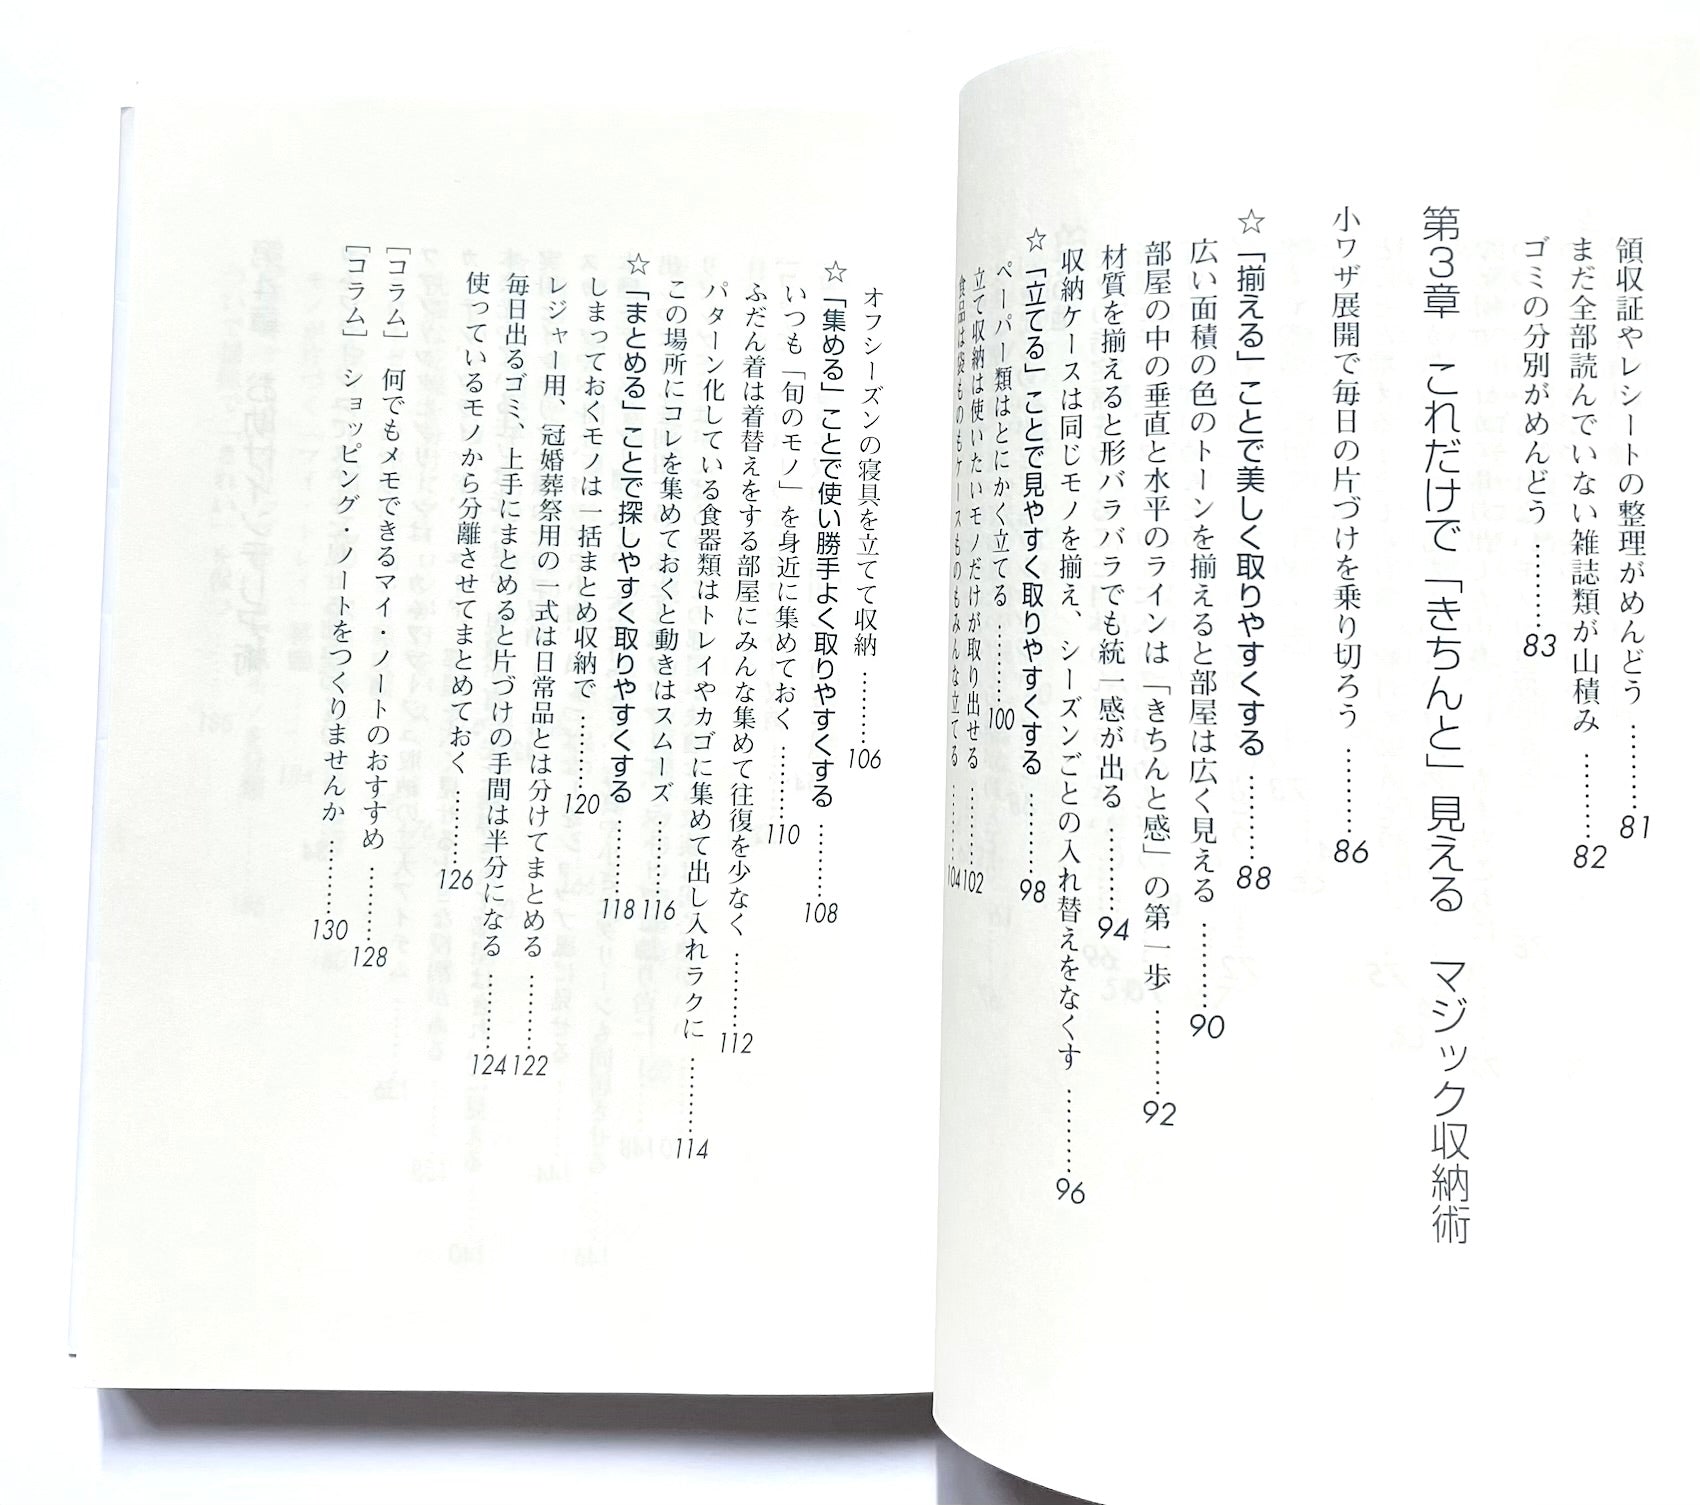 領収証やレシートの整理がめんどう………81
まだ全部読んでいない雑誌類が山積み………82
ゴミの分別がめんどう………83
第3章　これだけで「きちんと」見える　マジック収納術
小ワザ展開で毎日の片づけを乗り切ろう………86
☆「揃える」ことで美しく取りやすくする………88
広い面積の色のトーンを揃えると部屋は広く見える………90
部屋の中の垂直と水平のラインは「きちんと感」の第一歩………92
材質を揃えると形バラバラでも統一感が出る………94
収納ケースは同じモノを揃え、シーズンごとの入れ替えをなくす………96
☆「立てる」ことで見やすく取りやすくする………98
ペーパー類はとにかく立てる………100
立て収納は使いたいモノだけが取り出せる………102
食品は袋ものもケースものもみんな立てる………104
オフシーズンの寝具を立てて収納………106
☆「集める」ことで使い勝手よく取りやすくする………108
いつも「旬のモノ」を身近に集めておく………110
ふだん着は着替えをする部屋にみんな集めて往復を少なく………112
パターン化している食器類はトレイやカゴに集めて出し入れラクに………114
この場所にコレを集めておくと動きはスムーズ………116
☆「まとめる」ことで探しやすく取りやすくする………118
しまっておくモノは一括まとめ収納で………120
レジャー用、冠婚葬祭用の一式は日常品とは分けてまとめる………122
毎日出るゴミ、上手にまとめると片づけの手間は半分になる………124
使っているモノから分離させてまとめておく………126
［コラム］何でもメモできるマイ・ノートのおすすめ………128
［コラム］ショッピング・ノートをつくりませんか………130